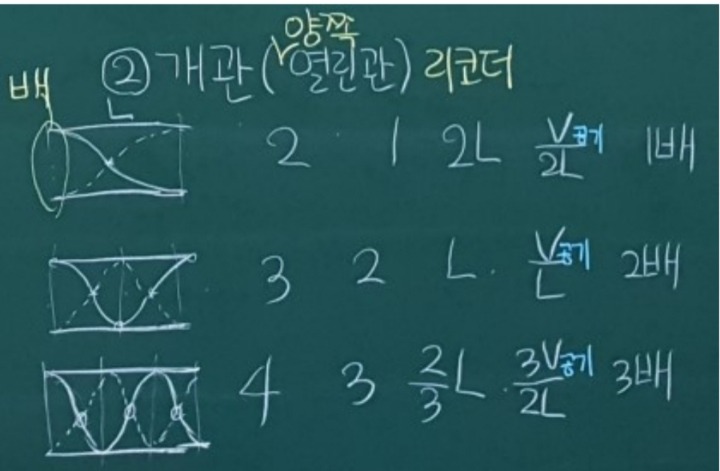 양쪽
배 ② 개관(열린관) 리코더
L
2 1 2L V공기/2L 1배
3 2 L V공기/L 2배
4 3 2/3 L 3V공기/2L 3배